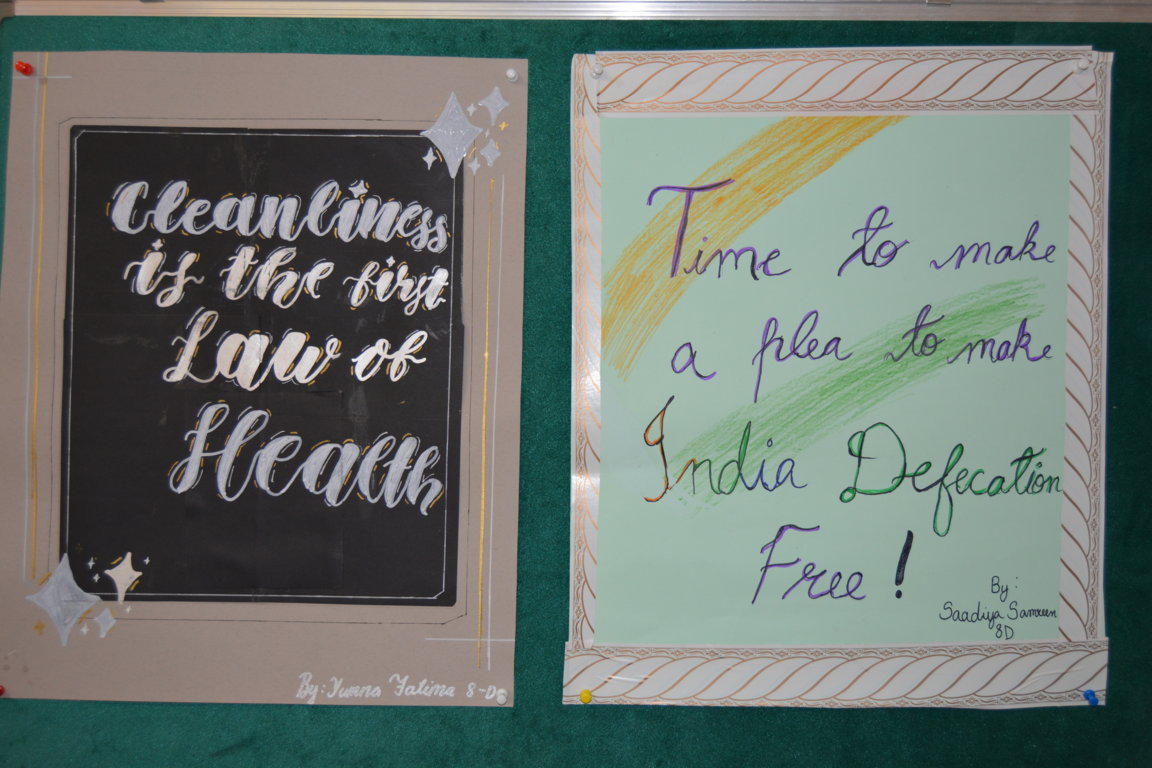 Cleanliness
is the first
Law of
Health
By: Fatima 8-D
Time to make
a plea to make
India Defecation
Free!
By:
Saadiya Samreen
8D